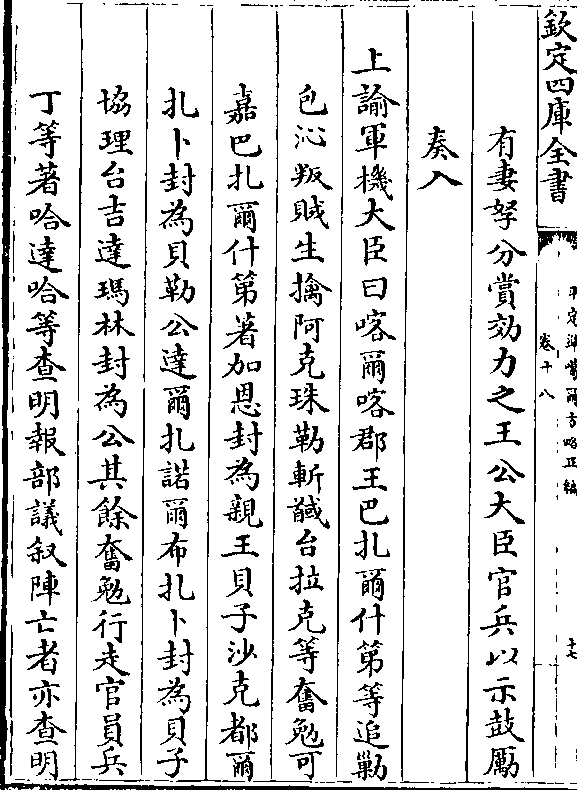 欽定四庫全書
平定凖噶爾方略正編
卷十八
十七
有妻孥分賞効力之王公大臣官兵以示鼓勵
奏入
上諭軍機大臣曰喀爾喀郡王巴扎爾什第等追勦
包沁叛賊生擒阿克珠勒斬馘台拉克等奮勉可
嘉巴扎爾什第著加恩封為親王貝子沙克都爾
扎卜封為貝勒公達爾扎諾爾布扎卜封為貝子
協理台吉達瑪林封為公其餘奮勉行走官員兵
丁等著哈達哈等查明報部議叙陣亡者亦查明